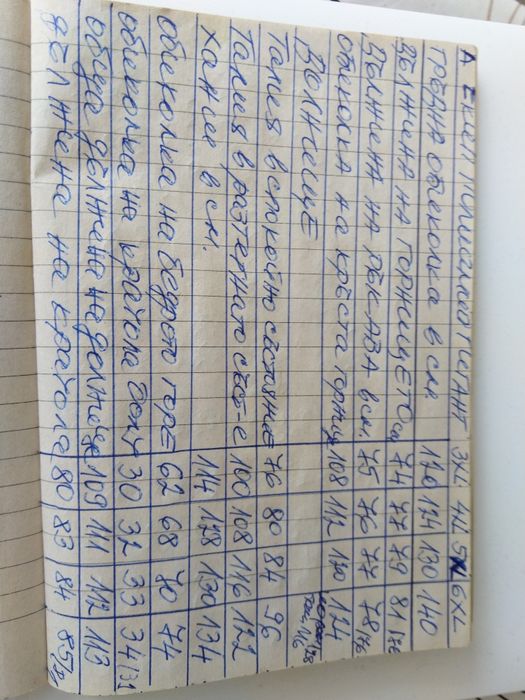 А Екип 3XL 4XL 5XL 6XL
гръдна обиколка в см 130 140
Дължена на горнището см 74 77 79 81 /86
Дължена на ръкава в см. 75 76 77 78 76
обиколка на кръста горнищ 108 112 120 124
Долнище
Талия в спокойно състояние 76 80 84 96
Талия в разтегнато състе 100 108 116 122
ханш в см. 114 128 130 134
обиколка на бедрото горе 62 68 70 74
обиколка на крачола долу 30 32 33 34 /31
обща дължена на долнище 109 111 112 113
дължена на крачола 80 83 84 85